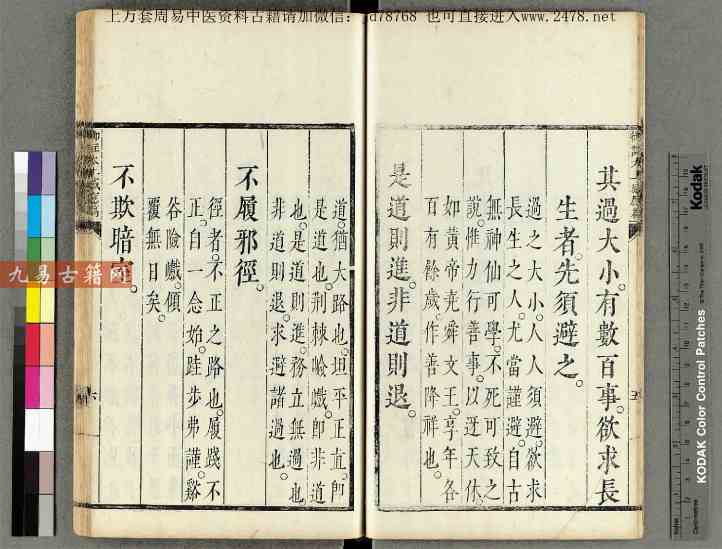 上万套周易中医资料古籍请加微信: d78768 也可直接进入www.2478.net
其過大小有數百事欲求長
生者先須避之
過之大小人人須避欲求
長生之人尤當謹避自古
無神仙可學不死可致之
說惟力行善事以迓天休
如黃帝堯舜文王享年各
百有餘歲作善降祥也
是道則進非道則退
五
道猶大路也坦平正直即
是道也荆棘崄巇即非道
也是道則進務立無過也
非道則退求避諸過也
不履邪徑
徑者不正之路也履踐不
正自一念始跬步弗謹谿
谷險巇傾
覆無日矣
不欺暗室
六
九易古籍网
Kodak
KODAK Color Control Patches